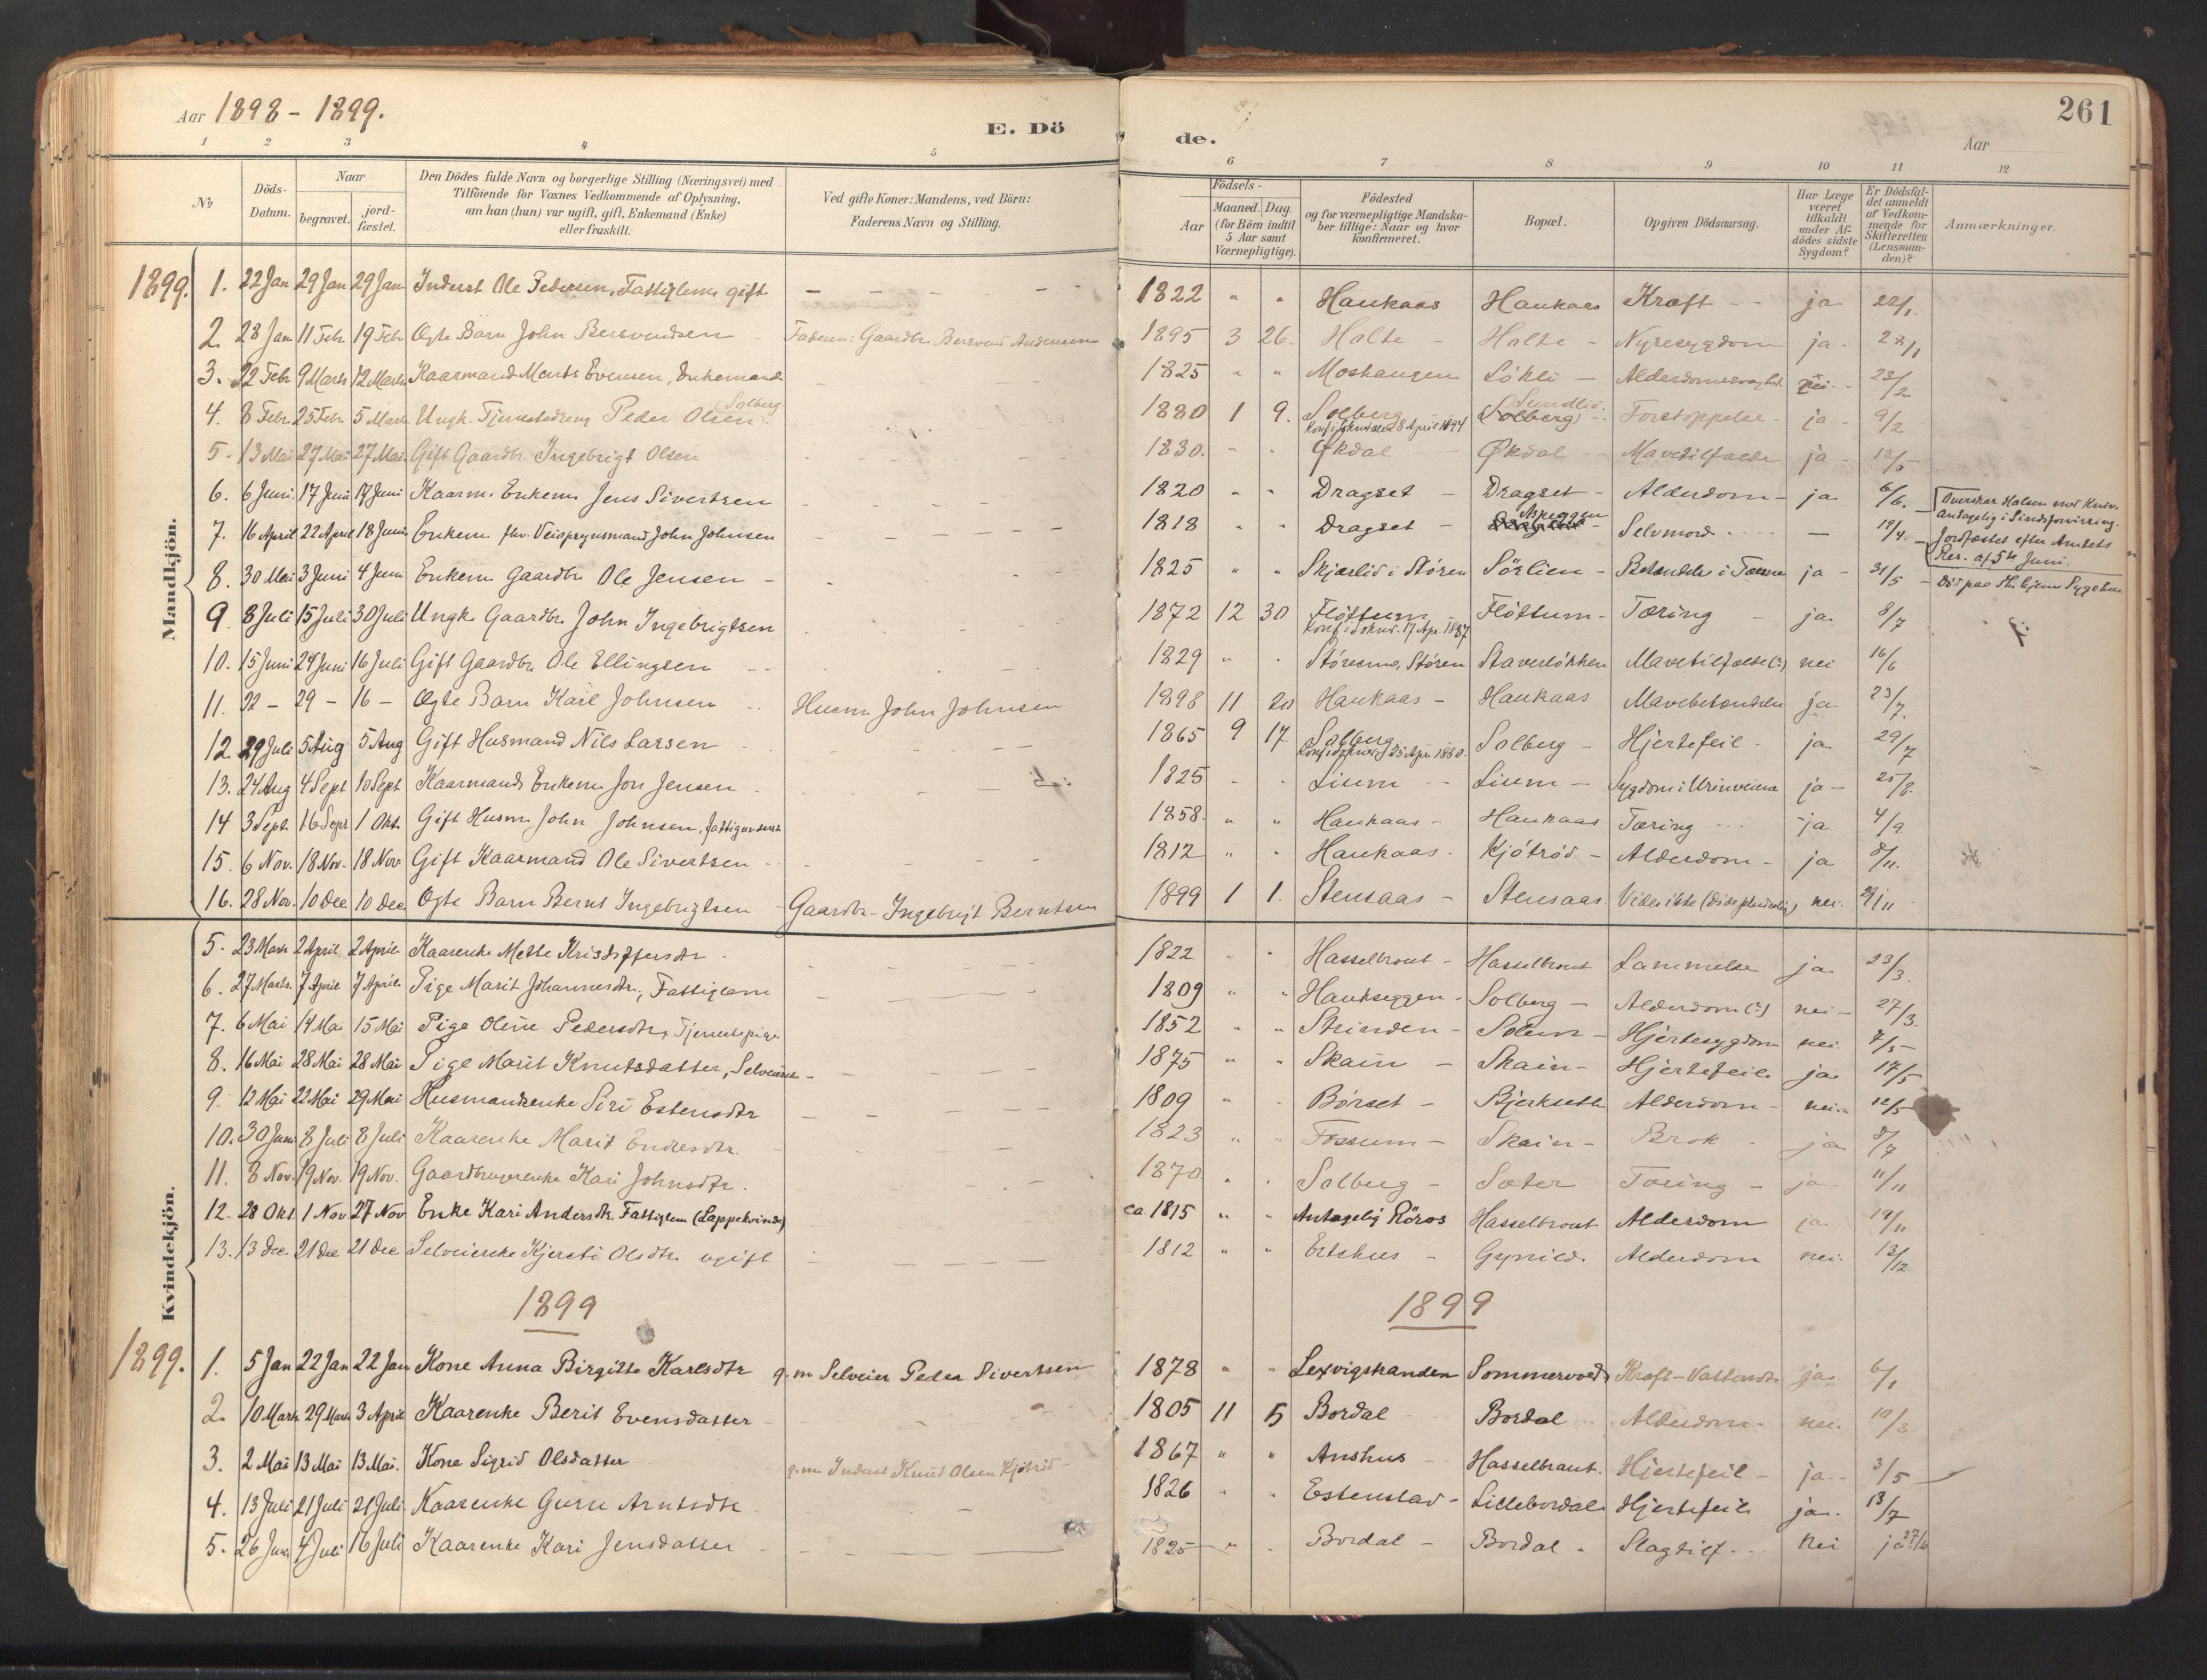 Aar 1898 - 1899.
E. Dö
de.
261
Aar
1 2 3 4 5 6 7 8 9 10 11 12
№
Döds-Datum.
Naar
begravet.
jord-fæstet.
Den Dödes fulde Navn og borgerlige Stilling (Næringsvei) med
Tilföiende for Voxnes Vedkommende af Oplysning,
om han (hun) var ugift, gift, Enkemand (Enke)
eller fraskilt.
Ved gifte Koner: Mandens, ved Börn:
Faderens Navn og Stilling.
Födsels-
Aar
Maaned. Dag.
(for Börn indtil
5 Aar samt
Værnepligtige).
Födested
og for værnepligtige Mandska-
ber tillige: Naar og hvor
konfirmeret.
Bopæl.
Opgiven Dödsaarsag.
Har Læge
været
tilkaldt
under Af-
dödes sidste
Sygdom?
Er Dödsfal-
det anmeldt
af Vedkom-
mende for
Skifteretten
(Lensman-
den)?
Anmærkninger.
Mandkjön.
1899. 1. 22 Jan 29 Jan 29 Jan Inderst Ole Pedersen, Fattiglem, gift 1822 " " Haukaas Haukaas Kræft ja 22/1
2. 28 Jan 11 Febr 19 Febr Ægte Barn John Bersvendsen Faderen: Gaardbr Bersvend Andersen 1895 3 26. Halte Halte Nyresygdom ja 28/1
3. 22 Febr 9 Marts 12 Marts Kaarmand Ments Evensen, Enkemand 1825 " " Moshaugen Løkli Alderdomssvaghed nei 23/2
4. 8 Febr. 25 Febr. 5 Marts Ungk. Tjenestedreng Peder Olsen Solberg 1880 1 9. Solberg Konf. i Soknedal 8 April 1894 Solberg Sundlid Forstoppelse ja 9/2
5. 13 Mai 27 Mai 27 Mai Gift Gaardbr. Ingebrigt Olsen 1830. Økdal Økdal Mavetilfælde ja 13/5
6. 6 Juni 17 Juni 17 Juni Kaarm. Enkem. Jens Sivertsen 1820 " " Dragset Dragset Alderdom ja 6/6.
7. 16 April 22 April 18 Juni Enkem. fhv. Veiopsynsmand John Johnsen 1818 " " Dragset Aseggen Selvmord — 18/4. Overskar Halsen med Kniv.
antagelig i Sindsforvirring.
Jordfæstet efter Amtets
Res. af 5te Juni.
8. 30 Mai 3 Juni 4 Juni Enkem Gaardbr Ole Jensen 1825 " " Skjærlid i Støren Sörlien Betændelse i Tarme ja 31/5 Död paa Th.hjem Sygehus
9 8 Juli 15 Juli 30 Juli Ungk. Gaardbr. John Ingebrigtsen 1872 12 30 Flöttum Konf. i Sokned. 17 Apr. 1887 Flöttum Tæring ja 8/7
10. 15 Juni 24 Juni 16 Juli Gift Gaardbr Ole Ellingsen 1829 " Størenmo, Støren Staverløkken Mavetilfælde (?) nei 16/6
11. 22 — 29 — 16 — Ægte Barn Karl Johnsen Husm John Johnsen 1898 11 20 Haukaas Haukaas Mavebetændelse ja 23/7.
12. 29 Juli 5 Aug 5 Aug Gift Husmand Nils Larsen 1865 9 17 Solberg Konf. i Sokned. 25 Apr. 1880. Solberg Hjertefeil ja 29/7
13. 24 Aug 4 Sept 10 Sept Kaarmand Enkem Jon Jensen 1825 Lium Lium Sygdom i Urinveiene ja 25/8.
14 3 Sept. 16 Sept 1 Okt. Gift Husm. John Johnsen, fattigunderst 1858. " " Haukaas Haukaas Tæring ja 4/9
15. 6 Nov. 18 Nov. 18 Nov Gift Kaarmand Ole Sivertsen 1812 " " Haukaas Kjøtrød Alderdom ja 8/11.
16. 28 Nov. 10 Dec 10 Dec Ægte Barn Bernt Ingebrigtsen Gaardbr. Ingebrigt Berntsen 1899 1 1. Stensaas Stensaas Vides ikke nei. 29/11
Kvindekjön.
5. 23 Marts 2 April 2 April Kaarenke Mette Kristoffersdtr 1822 Hasselbrout Hasselbrout Lammelse ja 23/3.
6. 27 Marts. 7 April 7 April Pige Marit Johannesdtr, Fattiglem 1809 " " Haukseggen Solberg Alderdom (?) nei 27/3
7. 6 Mai 14 Mai 15 Mai Pige Oline Pedersdtr, Tjenestepige 1852 " " Strinden Solum Hjertesygdom nei. 7/5
8. 16 Mai 28 Mai 28 Mai Pige Marit Knutsdatter, Selveiersk 1875 " " Skain Skain Hjertefeil ja 17/5
9. 12 Mai 22 Mai 29 Mai Husmandsenke Siri Estensdtr 1809 " Børset Bjerksetli Alderdom nei. 12/5
10. 30 Juni 8 Juli 8 Juli Kaarenke Marit Endresdtr. 1823 " " Fossum Skain Brok ja 8/7
11. 8 Nov. 19 Nov. 19 Nov. Gaardbrugerenke Kari Johnsdtr. 1870 Solberg Sæter Tæring ja 11/11
12. 28 Okt 1 Nov 27 Nov Enke Kari Andersdtr. Fattiglem (Lappekvinde) ca 1815 " " Antagelig Röros Hasselbrout Alderdom ja. 19/11
13. 13 Dec. 21 Dec 21 Dec Selveierske Kjersti Olsdtr. ugift 1812 " " Ertshus Gynild. Alderdom nei. 13/12
1899
1899
1899. 1. 5 Jan 22 Jan 22 Jan Kone Anna Birgitte Karlsdtr g.m Selveier Peder Sivertsen 1878 " " Lexvigstranden Sommervold ja 6/1
2. 10 Marts 29 Marts 3 April Kaarenke Berit Evensdatter 1805 11 5 Bordal Bordal Alderdom nei. 10/3
3. 2 Mai 13 Mai 13 Mai. Kone Sigrid Olsdatter g.m Inderst Knud Olsen Kjøtrød 1867 " " Anshus Hasselbrout. Hjertefeil ja 3/5
4. 13 Juli 21 Juli 21 Juli Kaarenke Guru Arntsdtr 1826 Estenstad Lillebordal Hjertefeil ja. 13/7
5. 26 Juni 4 Juli 16 Juli Kaarenke Kari Jensdatter 1825 " Bordal Bordal Slagtilf. Nei ja 27/6